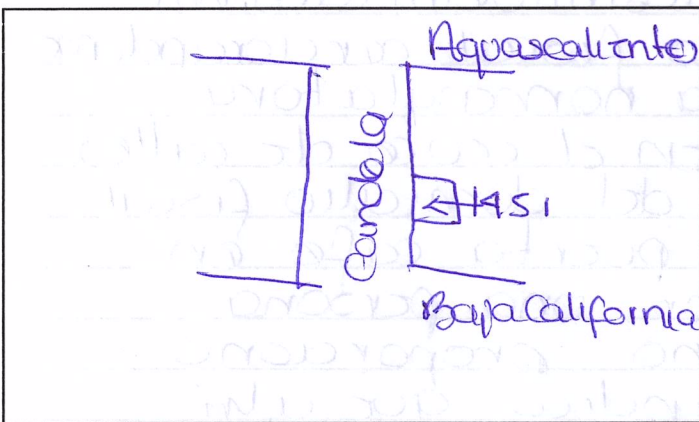 Aguascalientes
Candela
1451
Baja California